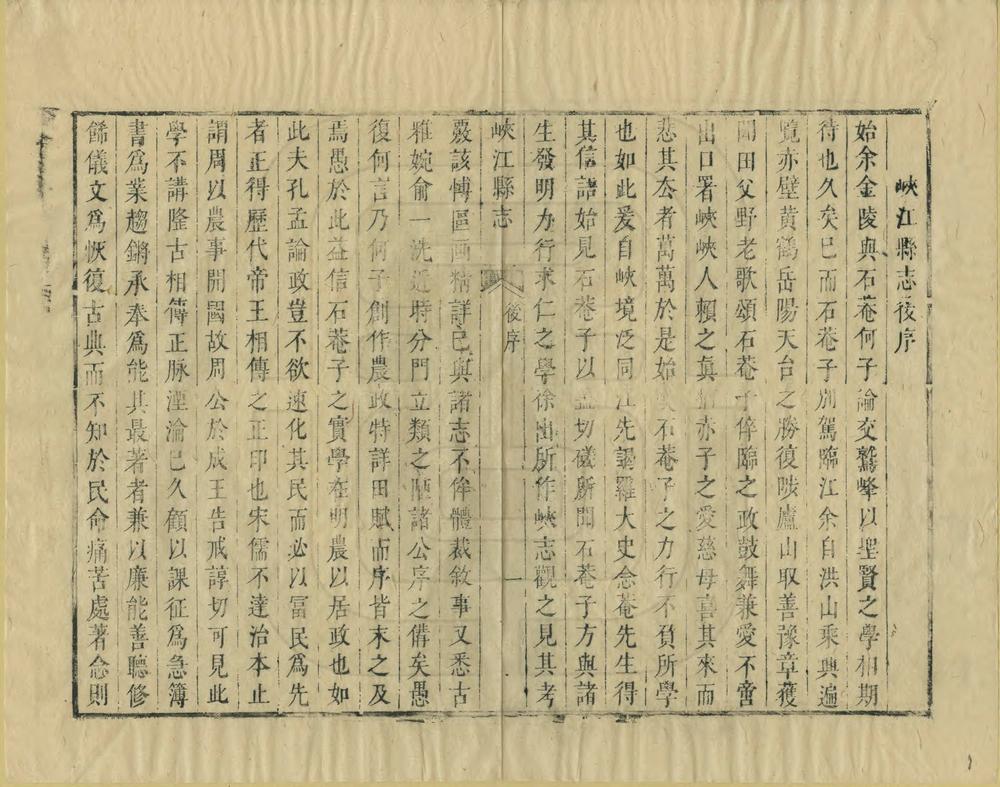 峽江縣志後序
始余金陵與石菴何子論交鷲峰以聖賢之學相期
待也久矣已而石菴子別駕臨江余自洪山乘興遍
覽赤壁黃鶴岳陽天台之勝復陟廬山取善豫章獲
聞田父野老歌頌石菴子倅臨之政鼓舞兼愛不啻
出口署峽峽人賴之眞猶赤子之愛慈母喜其來而
悲其去者萬萬於是始 石菴子之力行不貟所學
也如此爰自峽境泛同江先謁羅大史念菴先生得
其信語始見石菴子以 切磋所聞石菴子方與諸
生發明力行求仁之學徐出所作峽志觀之見其考
峽江縣志
後序
一
覈該愽區画精詳已與諸志不侔體裁敘事又悉古
雅婉俞一洗近時分門立類之陋諸公序之備矣愚
復何言乃何子創作農政特詳田賦而序皆末之及
焉愚於此益信石菴子之實學在明農以居政也如
此夫孔孟論政豈不欲速化其民而必以富民爲先
者正得歷代帝王相傳之正印也宋儒不達治本止
謂周以農事開國故周公於成王告戒諄切可見此
學不講隆古相傳正脉湮淪已久顧以課征爲急簿
書爲業趨蹡承奉爲能其最著者兼以廉能善聽修
餙儀文爲恢復古典而不知於民命痛苦處著念則